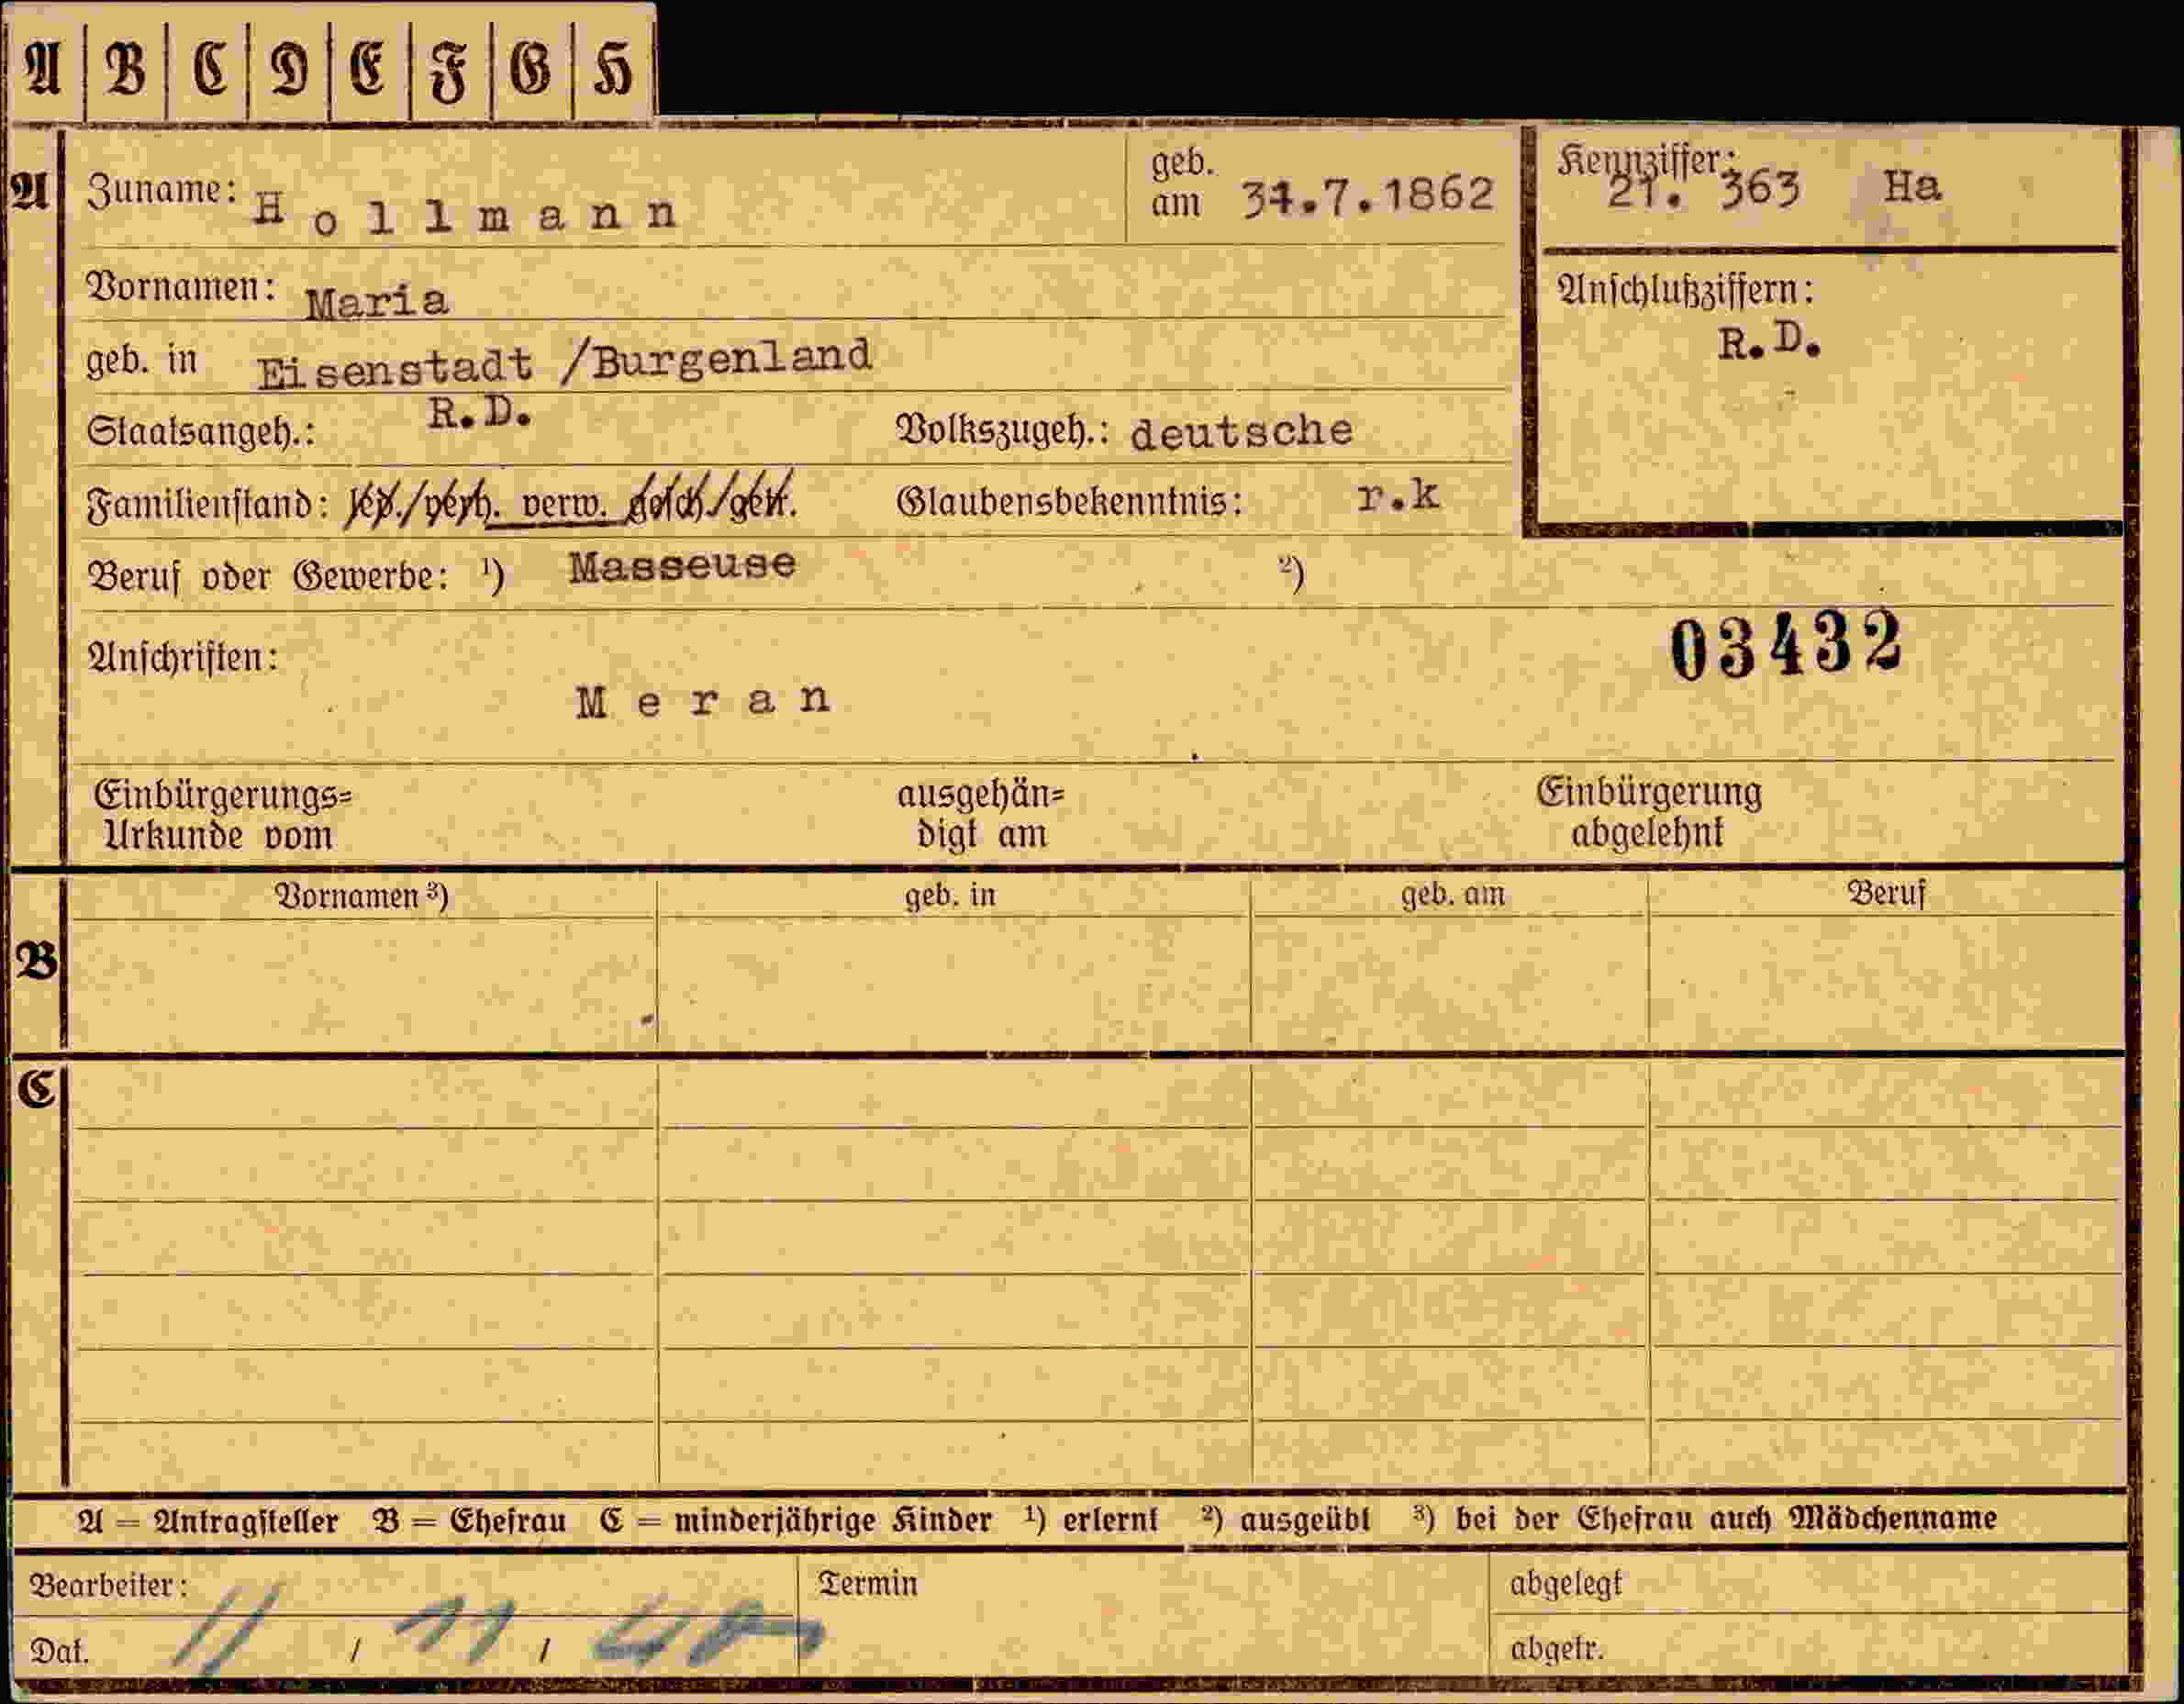 A B C D E F G H
A Zuname: Hollmann geb. am 31.7.1862 Kennziffer: 21. 363 Ha
Vornamen: Maria Anschlußziffern:
R.D.
geb. in Eisenstadt /Burgenland
Staatsangeh.: R.D. Volkszugeh.: deutsche
Familienstand: led./verh. verw. gesch./getr. Glaubensbekenntnis: r.k
Beruf oder Gewerbe: ¹) Masseuse ²)
03432
Anschriften:
Meran
Einbürgerungs= ausgehän= Einbürgerung
Urkunde vom digt am abgelehnt
Vornamen ³) geb. in geb. am Beruf
B
C
A = Antragsteller B = Ehefrau C = minderjährige Kinder ¹) erlernt ²) ausgeübt ³) bei der Ehefrau auch Mädchenname
Bearbeiter: Termin abgelegt
Dat. 11 / 11 / 40 abgetr.